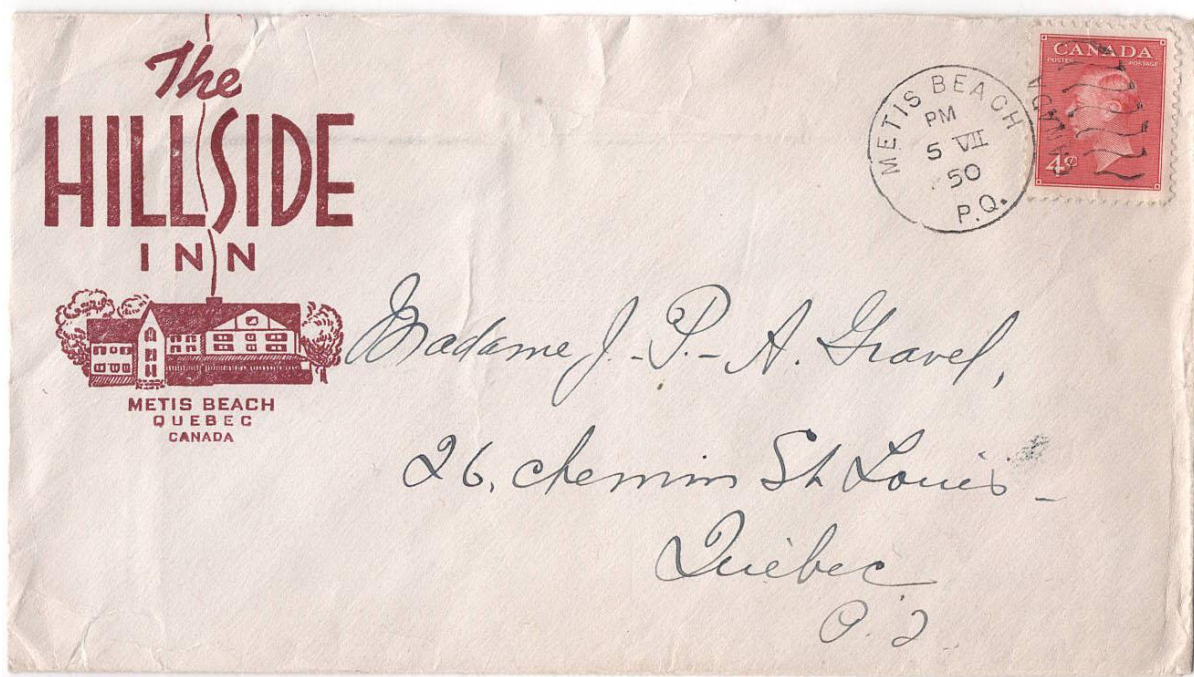 The
HILLSIDE
INN
METIS BEACH
QUEBEC
CANADA
METIS BEACH
PM
5 VII
50
P.Q.
CANADA
CANADA
POSTES POSTAGE
4¢
Madame J.-P.-A. Gravel,
26, chemin St Louis -
Québec
P.Q.